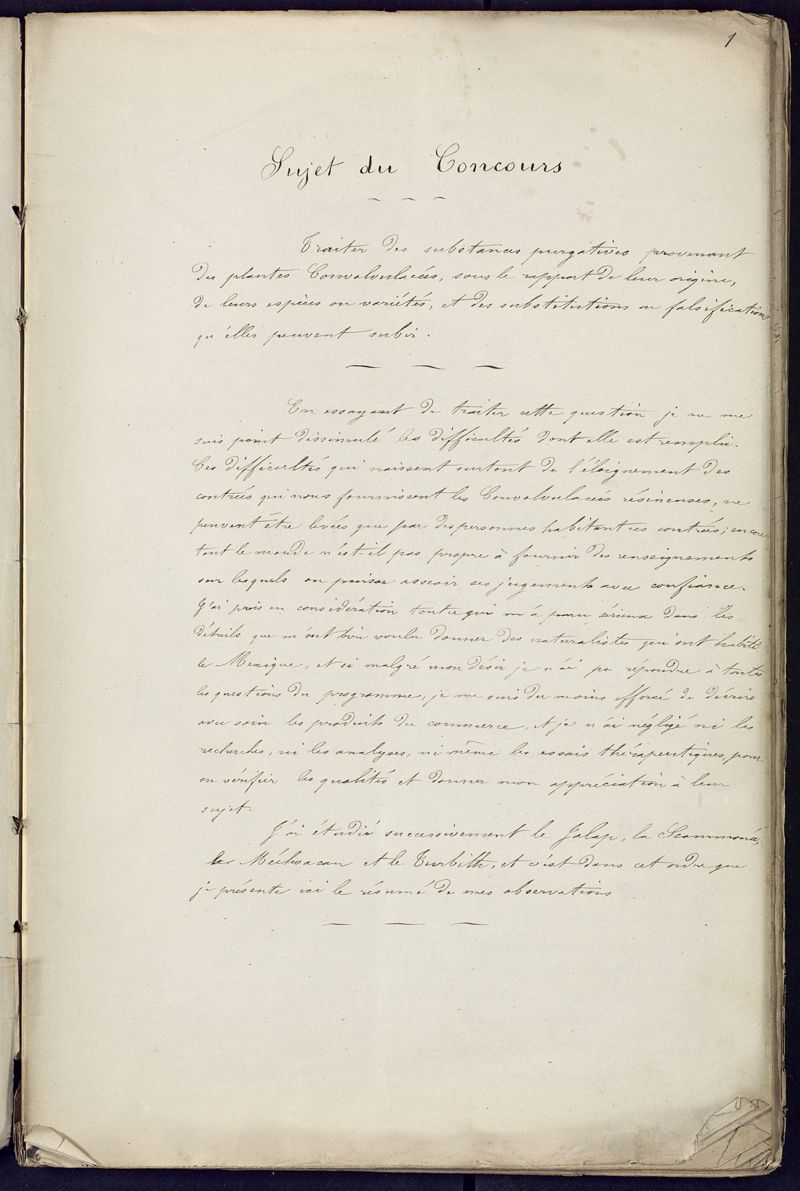 1
Sujet du Concours
Traiter des substances purgatives provenant
des plantes Convolvulacées, sous le rapport de leur origine,
de leurs espèces ou variétés, et des substitutions ou falsifications
qu'elles peuvent subir.
En essayant de traiter cette question je ne me
suis point dissimulé les difficultés dont elle est remplie.
Ces difficultés qui naissent surtout de l'éloignement des
contrées qui nous fournissent les Convolvulacées résineuses, ne
peuvent être levées que par des personnes habitant ces contrées; encore
tout le monde n'est-il pas propre à fournir des renseignements
sur lesquels on puisse asseoir ses jugements avec confiance.
J'ai pris en considération tout ce qui m'a paru sérieux dans les
détails que m'ont bien voulu donner des naturalistes qui ont habité
le Mexique, et si malgré mon désir je n'ai pu répondre à toutes
les questions du programme, je me suis du moins efforcé de décrire
avec soin les produits du commerce, et je n'ai négligé ni les
recherches, ni les analyses, ni même les essais thérapeutiques, pour
en vérifier les qualités et donner mon appréciation à leur
sujet.
J'ai étudié successivement le Jalap, la Scammonée,
le Méchoacan et le Turbith, et c'est dans cet ordre que
je présente ici le résumé de mes observations